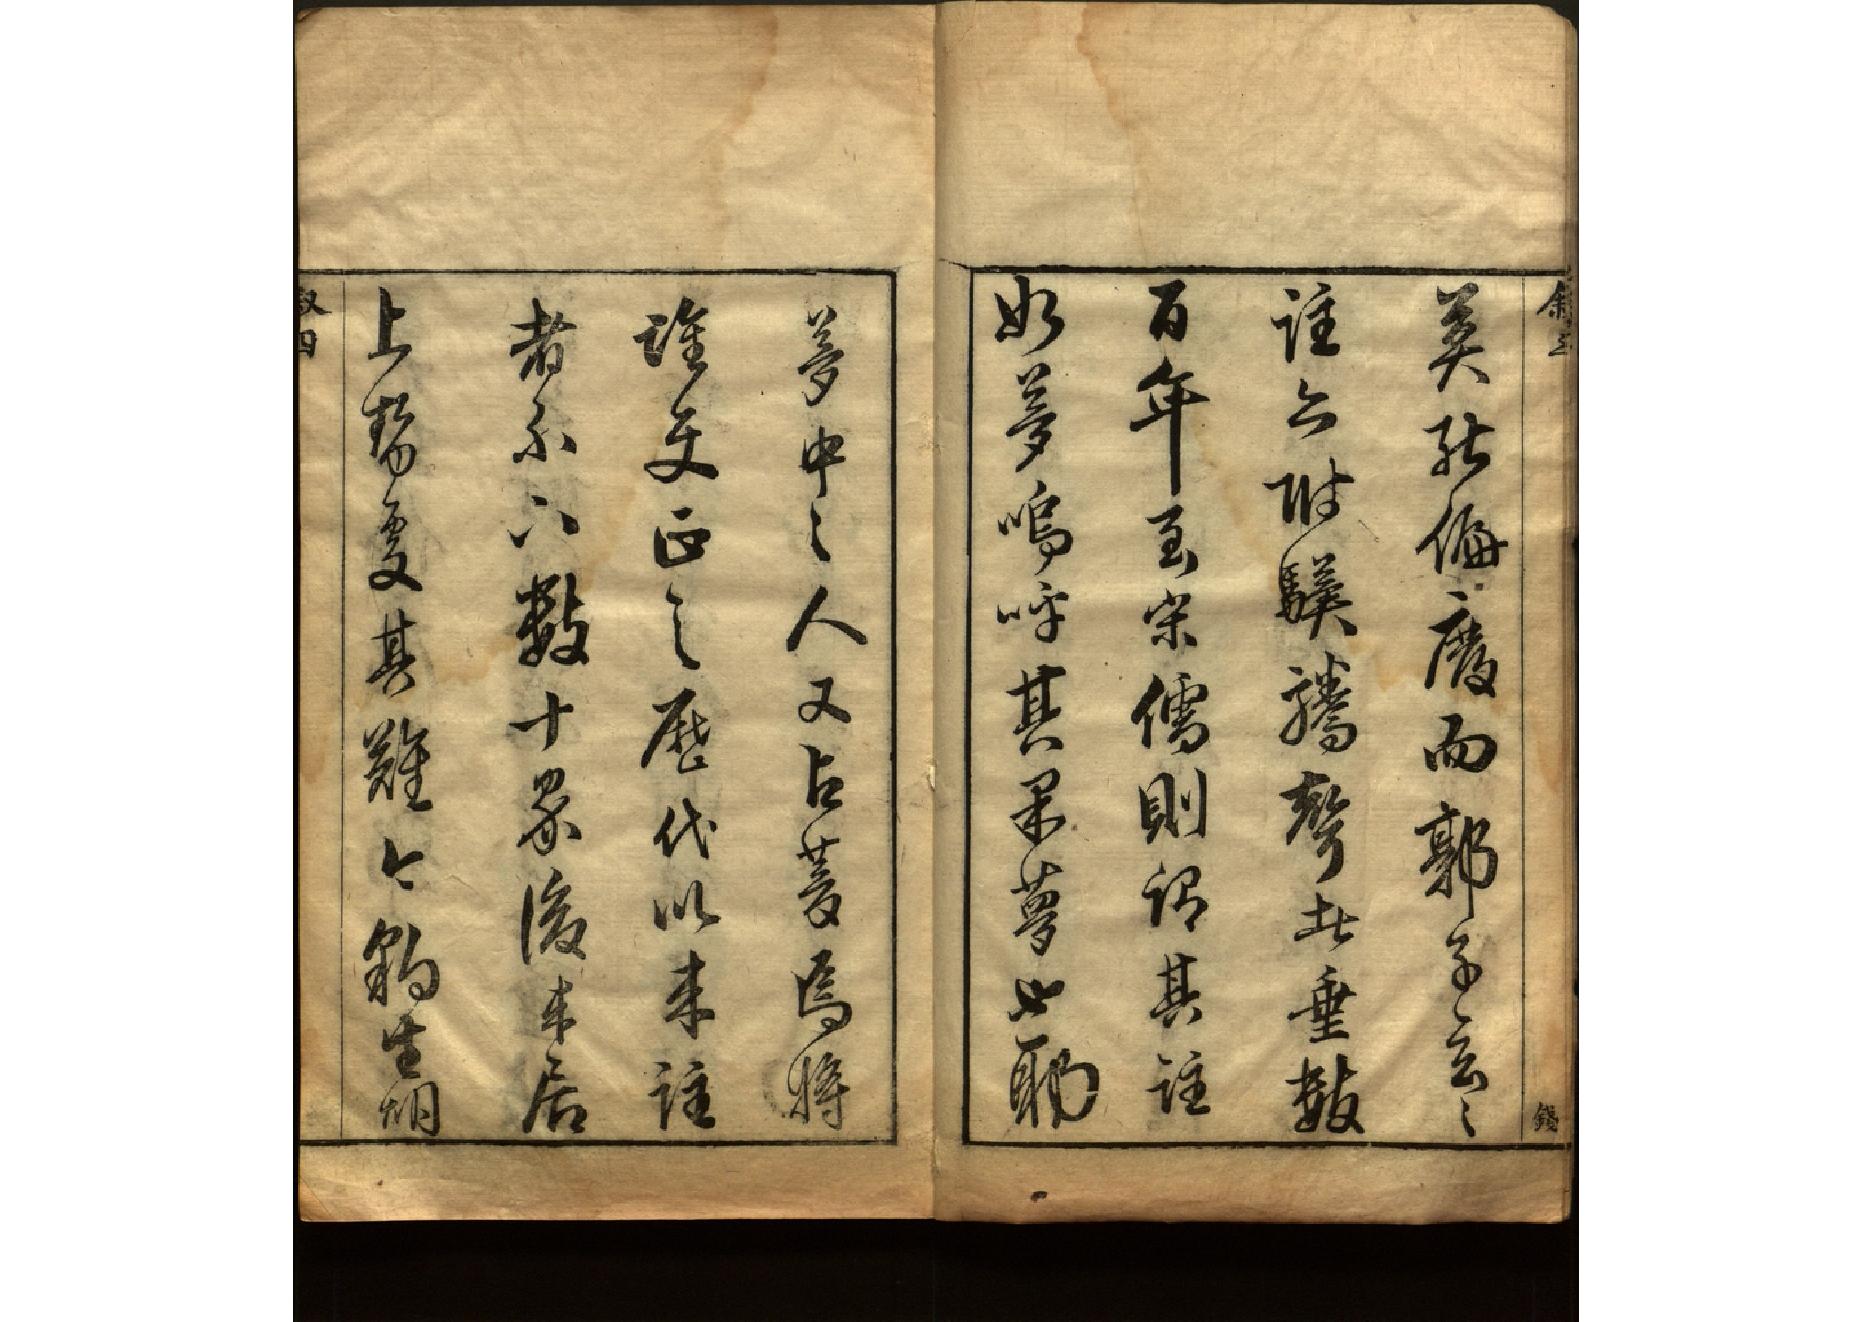 莫能偏廢而郭子玄之
註亦附驥騰聲者垂數
百年至宋儒則謂其註
如夢嗚呼其果夢也耶
夢中之人又占夢焉將
誰使正之歷代以來註
者不下數十家後來居
上
其難
生
敘三
錢
敘四